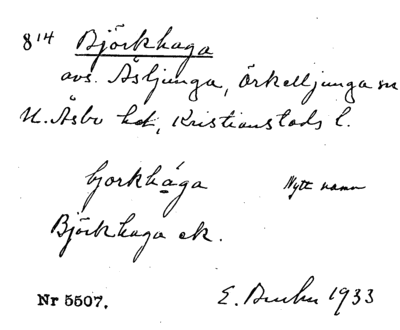 8¹⁴ Björkhaga
avs. Åsljunga, Örkelljunga sn
N. Åsbo hd, Kristianstads l.
bjorkhåga Nytt namn
Björkhaga ek.
Nr 5507. E. 1933